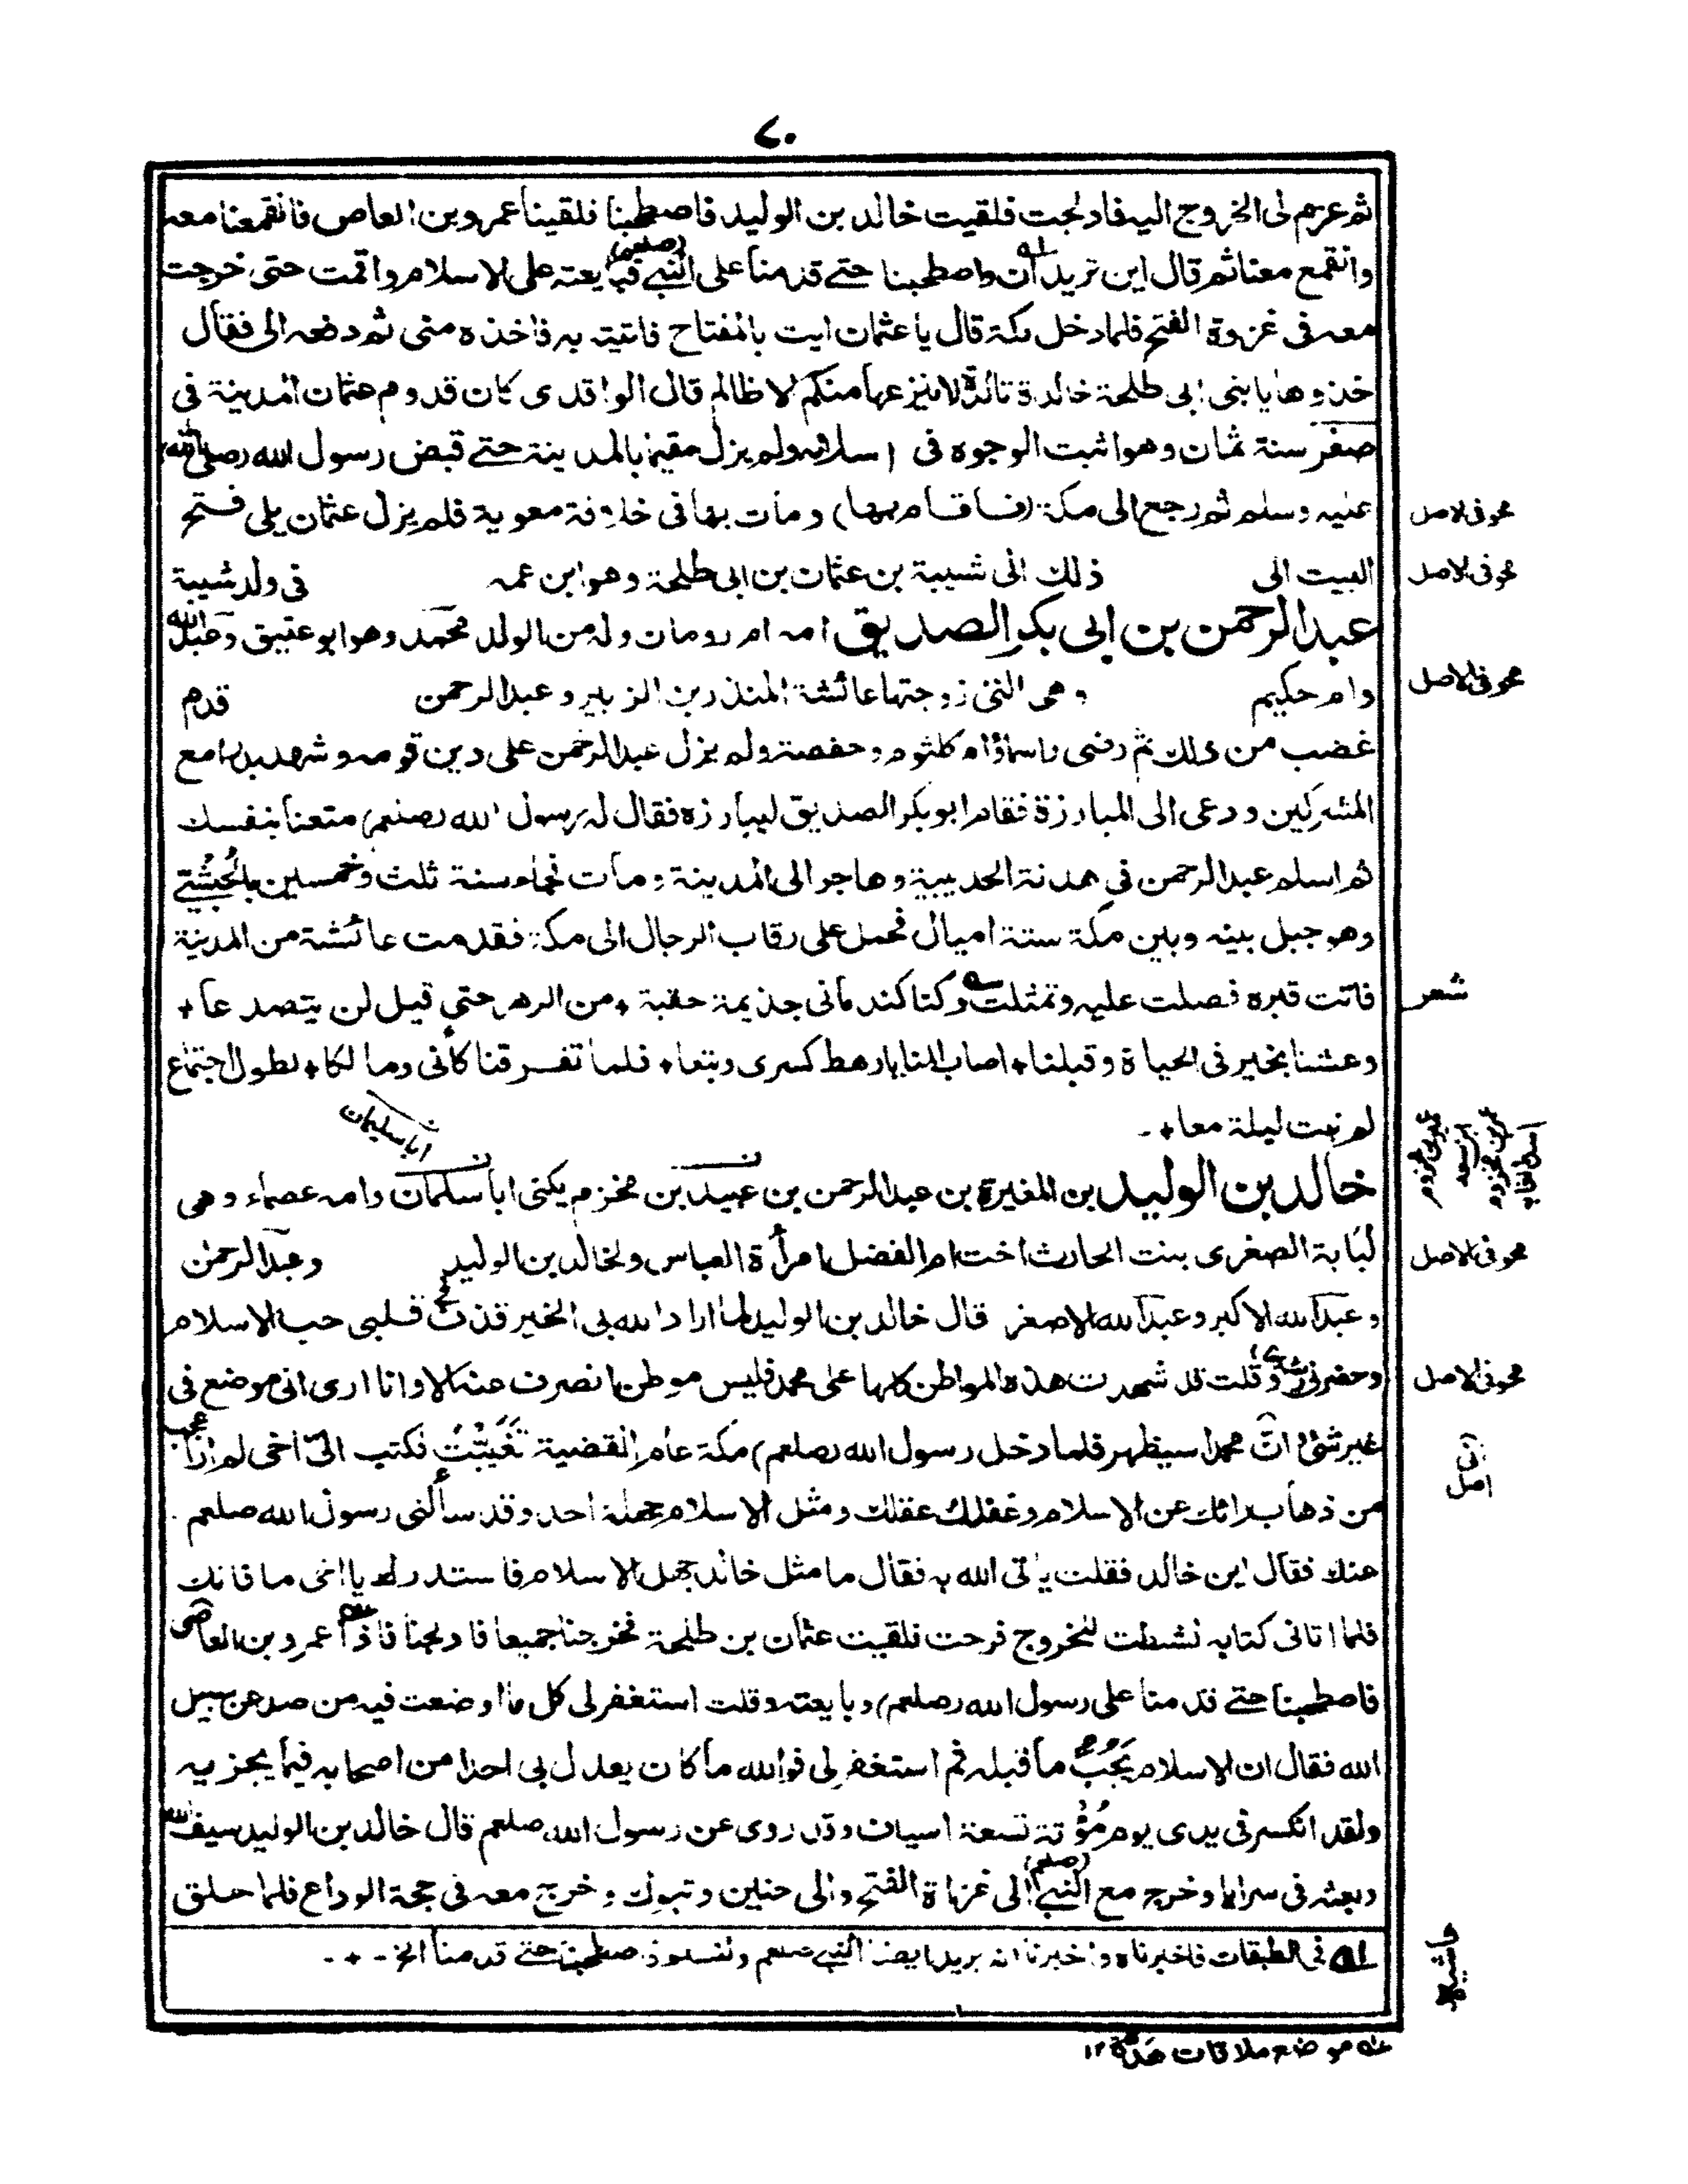 ٧٠
ثم عزم لى الخروج اليه فادلجت فلقيت خالد بن الوليد فاصطحبنا فلقينا عمرو بن العاص فانقمعنا معه
وانقمع معنا ثم قال اين تريدان واصطحبنا حتے قدمنا على النبے (صلعم) فبايعته على الاسلام واقمت حتى خرجت
معه فى غزوة الفتح فلما دخل مكة قال يا عثمان ايت بالمفتاح فاتيته به فاخذه منى ثم دفعه الى فقال
خذوها يا بنى ابى طلحة خالدة تالدة لا ينزعها منكم الا ظالم قال الواقدى كان قدوم عثمان المدينة فى
صفر سنة ثمان وهو اثبت الوجوه فى اسلامه ولم يزل مقيما بالمدينة حتے قبض رسول الله (صلى الله
عليه وسلم ثم رجع الى مكة (فاقام بها) ومات بها فى خلافة معوية فلم يزل عثمان يلى فتح
محو فى الاصل
البيت الى ذلك الى شيبة بن عثمان بن ابى طلحة وهو ابن عمه فى ولد شيبة
محو فى الاصل
عبد الرحمن بن ابى بكر الصديق امه ام رومان وله من الولد محمد وهو ابو عتيق وعبد الله
وام حكيم وهى التى زوجتها عائشة المنذر بن الزبير وعبد الرحمن قدم
محو فى الاصل
غضب من ذلك ثم رضى واسماؤ ام كلثوم وحفصة ولم يزل عبد الرحمن على دين قومه وشهد بدرا مع
المشركين ودعى الى المبارزة فقام ابو بكر الصديق ليبارزه فقال له رسول الله (صلعم) متعنا بنفسك
ثم اسلم عبد الرحمن فى هدنة الحديبية وهاجر الى المدينة ومات فجاءة سنة ثلث وخمسين بالحبشى
وهو جبل بينه وبين مكة ستة اميال فحمل على رقاب الرجال الى مكة فقدمت عائشة من المدينة
فاتت قبره فصلت عليه وتمثلت وكنا كندمانى جذيمة حقبة + من الدهر حتى قيل لن يتصدعا +
شعر
وعشنا بخير فى الحياة وقبلنا + اصاب المنايا رهط كسرى وتبعا + فلما تفرقنا كأنى ومالكا + لطول اجتماع
لم نبت ليلة معا + -
خالد بن الوليد بن المغيرة بن عبد الرحمن بن عبيد بن مخزم يكنى ابا سلمان وامه عصماء وهى
ابا سليمان
لبابة الصغرى بنت الحارث اخت ام الفضل امرأة العباس ولخالد بن الوليد وعبد الرحمن
محو فى الاصل
وعبد الله الاكبر وعبد الله الاصغر قال خالد بن الوليد لما اراد الله بى الخير قذف فى قلبى حب الاسلام
وحضرنى رشدى وقلت قد شهدت هذه المواطن كلها على محمد فليس موطن انصرف عنه الا وانا ارى انى موضع فى
محو فى الاصل
غير شئ وان محمدا سيظهر فلما دخل رسول الله (صلعم) مكة عام القضية تغيبت فكتب الى اخى لم ار اعجب
من ذهاب رائك عن الاسلام وعقلك عقلك ومثل الاسلام جهله احد وقد سألنى رسول الله صلعم
عنك فقال اين خالد فقلت يأتى الله به فقال ما مثل خالد جهل الاسلام فاستدرك يا اخى ما فاتك
فلما اتانى كتابه نشطت للخروج فرحت فلقيت عثمان بن طلحة فخرجنا جميعا فادلجنا فاذا عمرو بن العاص
فاصطحبنا حتے قدمنا على رسول الله (صلعم) وبايعته وقلت استغفر لى كل ما اوضعت فيه من صد عن سبيل
الله فقال ان الاسلام يجب ما قبله ثم استغفر لى فوالله ما كان يعدل بى احدا من اصحابه فيما يجزيه
ولقد انكسر فى يدى يوم مؤتة تسعة اسياف وقد روى عن رسول الله صلعم قال خالد بن الوليد سيف الله
وبعثه فى سرايا وخرج مع النبے (صلعم) الى غزاة الفتح والى حنين وتبوك وخرج معه فى حجة الوداع فلما حلق
له فى الطبقات فاخبرناه واخبرنا انه يريد ايضا النبے صلعم حتے قدمنا الخ - + -
حاشية
موضع ملاقات